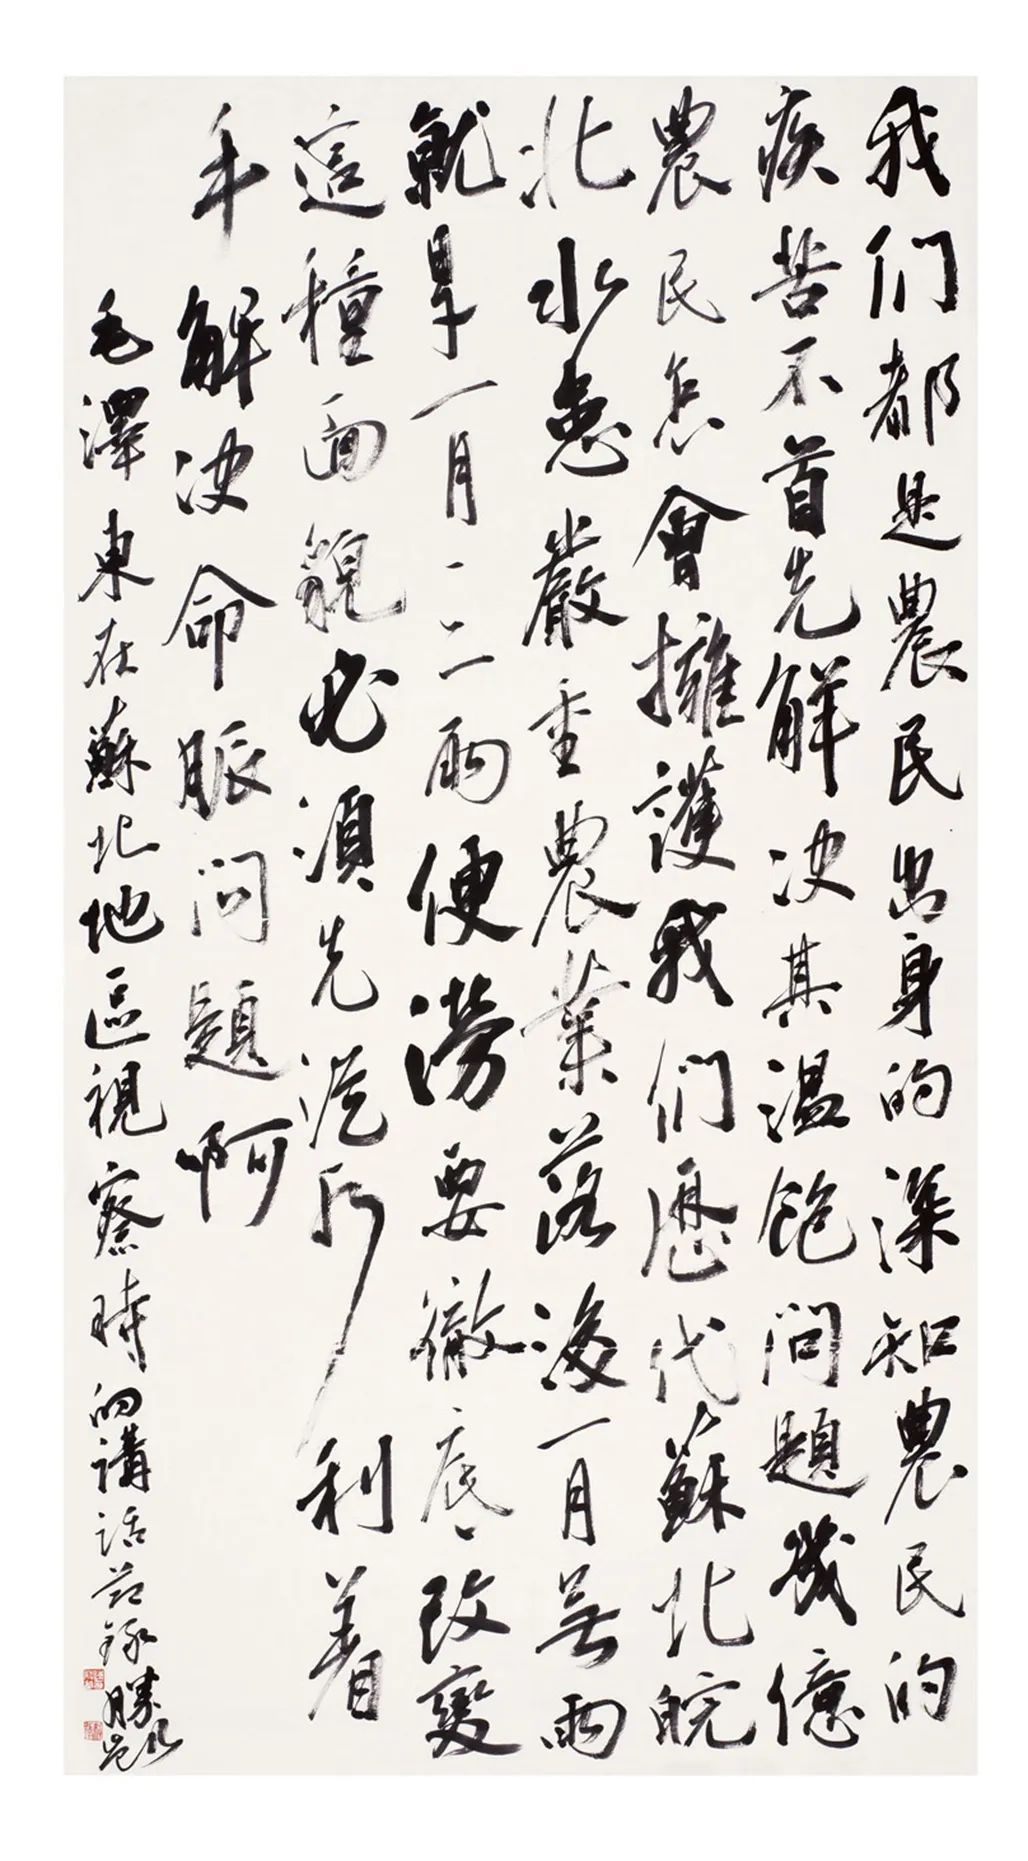 我们都是農民出身的深知農民的
疾苦不首先解决其溫飽问題幾億
農民怎會擁護我们歷代蘇北皖
北水患嚴重農業落後一月無雨
就旱一月一二雨便澇要徹底改變
這種面貌必須先從水利着
手解决命脈问題啊
毛澤東在蘇北地區視察時的講話節錄勝凱